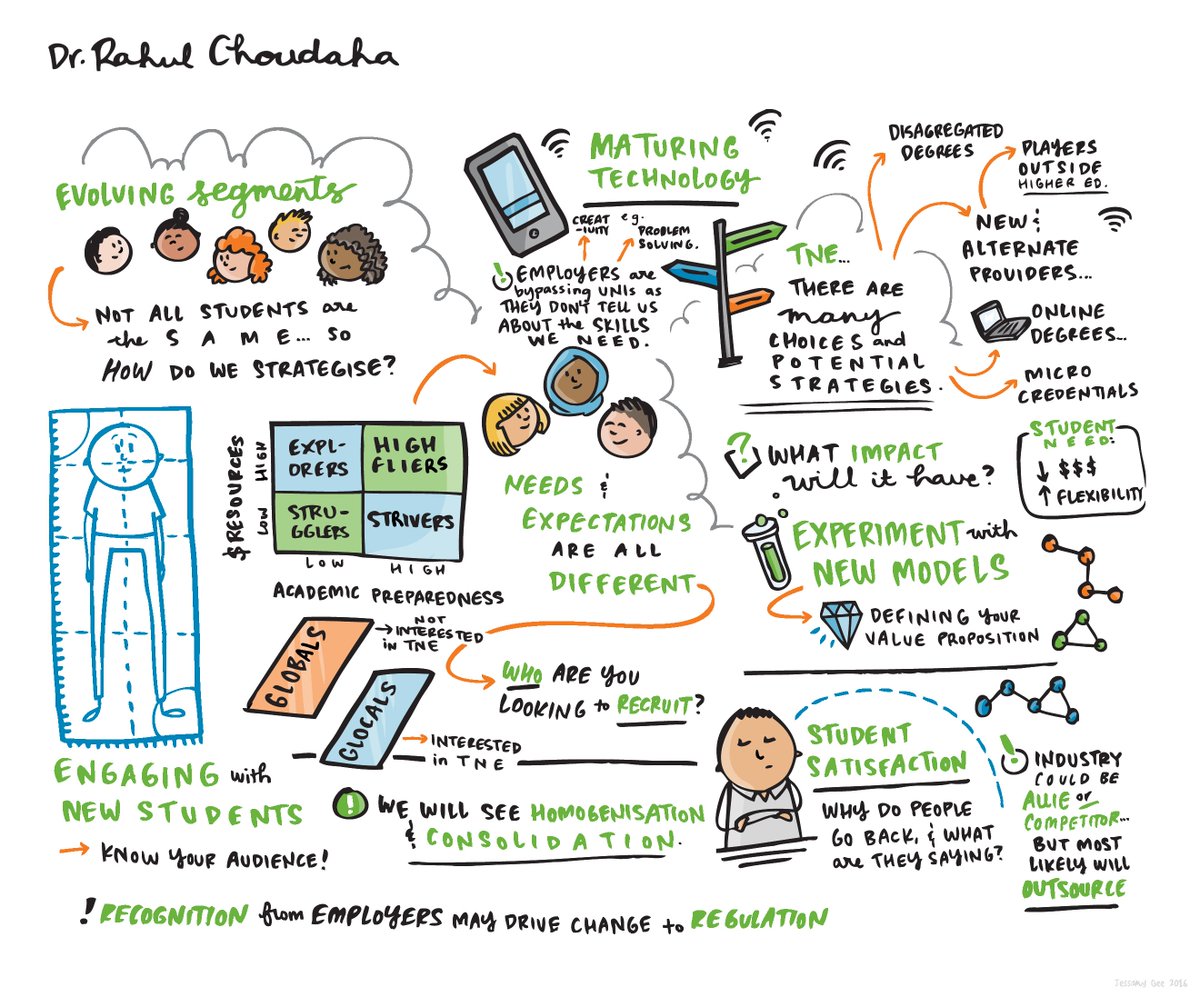 Dr. Rahul Choudaha
EVOLVING segments
NOT ALL STUDENTS are
the SAME... so
HOW DO WE STRATEGISE?
MATURING
TECHNOLOGY
CREAT
-IVITY
e.g.
PROBLEM
SOLVING.
! EMPLOYERS are
bypassing UNIs as
THEY DON'T TELL US
ABOUT the SKILLS
WE NEED.
TNE...
THERE ARE
many
CHOICES and
POTENTIAL
STRATEGIES.
DISAGREGATED
DEGREES
PLAYERS
OUTSIDE
HIGHER ED.
NEW &
ALTERNATE
PROVIDERS...
ONLINE
DEGREES...
MICRO
CREDENTIALS
$ RESOURCES
HIGH
LOW
EXPL-
ORERS
HIGH
FLIERS
STRU-
GGLERS
STRIVERS
LOW
HIGH
ACADEMIC PREPAREDNESS
NEEDS &
EXPECTATIONS
ARE ALL
DIFFERENT
? WHAT IMPACT
will it have?
STUDENT
NEED:
↓ $$$
↑ FLEXIBILITY
EXPERIMENT with
NEW MODELS
DEFINING your
VALUE PROPOSITION
GLOBALS
NOT
INTERESTED
in TNE
GLOCALS
INTERESTED
in TNE
WHO ARE YOU
LOOKING to RECRUIT?
ENGAGING with
NEW STUDENTS
KNOW YOUR AUDIENCE!
! WE WILL SEE HOMOGENISATION
& CONSOLIDATION.
STUDENT
SATISFACTION
WHY DO PEOPLE
GO BACK, & WHAT
are THEY SAYING?
! INDUSTRY
COULD BE
ALLIE or
COMPETITOR...
BUT MOST
LIKELY WILL
OUTSOURCE
! RECOGNITION from EMPLOYERS MAY DRIVE CHANGE to REGULATION
Jessamy Gee 2016